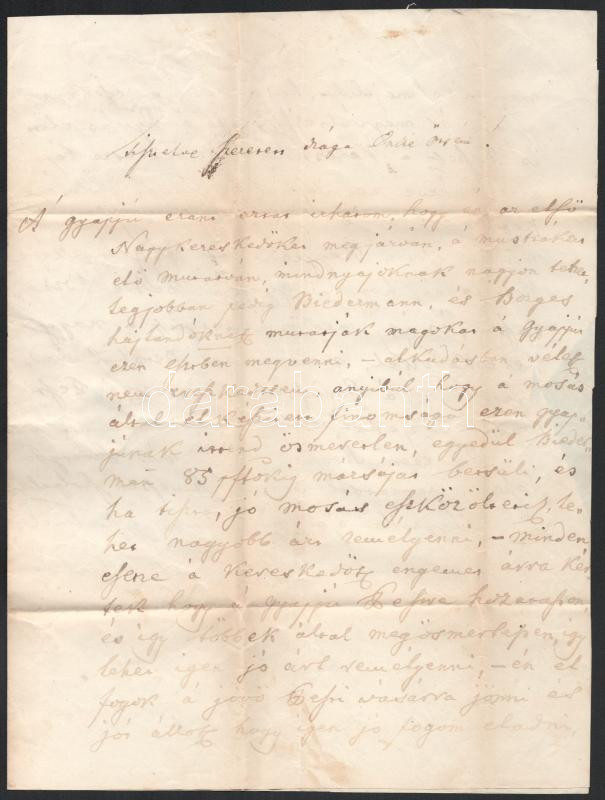 Tisztelve Szeretett drága Öcsém!
A gyapjú eránt aztat irhatom, hogy én az első
Nagykereskedőket megjárván, á mustrákat
elő mutatván, mindnyájoknak nagyon tetze,
legjobban pedig Biedermann, és Borges
hajlandóknak mutatják magokat á Gyapjú
ezen esetben megvenni, – alkudásban vélek
nem ereszkedtem, anyibúl hogy á mosás
által finomsága ezen gyap-
júnak ittend ösmeretlen, egyedül Bieder
man 85 pftokig mársáját betsüli, és
ha tiszta, jó mosás eszközöltetik, le-
het nagyobb árt remélyenni, – minden
esetre á Kereskedők engemet árra kér
tek hogy á gyapjú Pestre hozatasson,
és igy többek által megösmertetvén, igy
lehet igen jó árt remélyenni, – én el
fogok á jövő Pesti vásárra jönni és
jót állok hogy igen jó fogom eladni,
darabanth